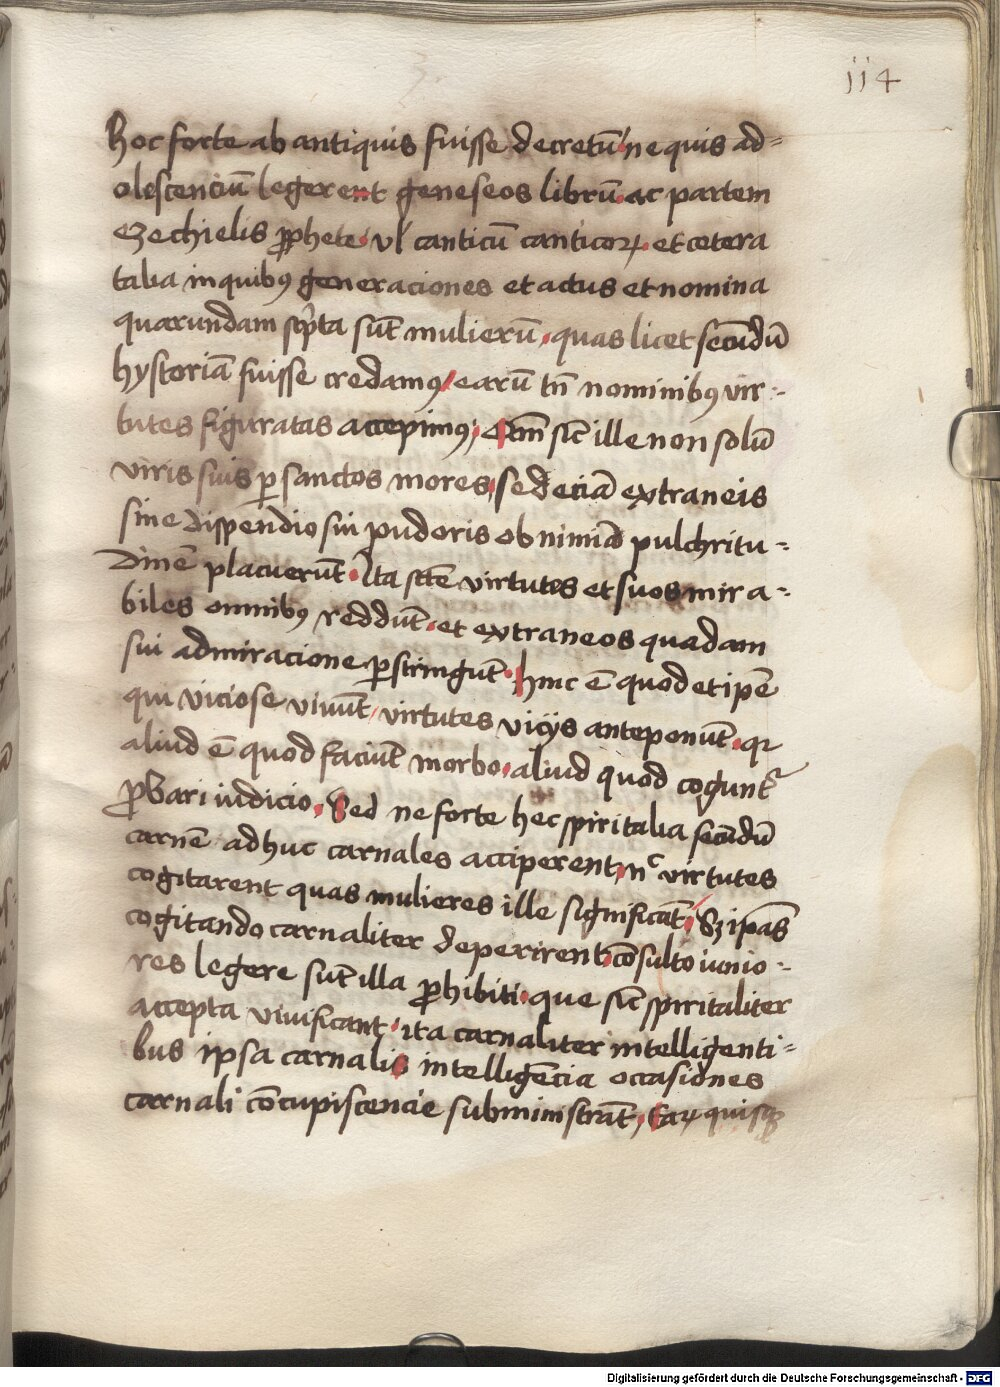 114
hoc forte ab antiquis fuisse decretū ne quis ad=
olescenciū legerent geneseos librū ac partem
ezechielis ꝓphete vl canticū canticoꝝ. et cetera
talia in quibꝰ generaciones et actus et nomina
quarundam scpta sūt mulierū, quas licet secūdū
hystoriā fuisse credamꝰ earū tn̄ nominibꝰ vir-
tutes figuratas accepimꝰ, sic ille non solū
viris suis ꝑ sanctos mores, sed eciā extraneis
sine dispendio sui pudoris ob nimiā pulchritu-
dinē placuerūt. Ita virtutes et suos mira-
biles omnibꝰ reddūt. et extraneos quadam
sui admiracione ꝑstringūt. hinc ē quod et ipē
qui viciose viuūt, virtutes vicijs anteponūt. qꝛ
aliud ē quod faciūt morbo. aliud quod cogunt̄
ꝓbari iudicio. Sed ne forte hec spiritalia secūdū
carnē adhuc carnales acciperent, nc virtutes
cogitarent quas mulieres ille significāt, Sꝫ ipās
cogitando carnaliter deperirent, cōsulto iunio-
res legere sūt illa ꝓhibiti. que sic spiritaliter
accepta viuificant. ita carnaliter intelligenti=
bus ipsa carnalis intelligēcia occasiones
carnali cōcupiscencie subministrāt, Eaꝝ quisqꝫ
Digitalisierung gefördert durch die Deutsche Forschungsgemeinschaft - DFG